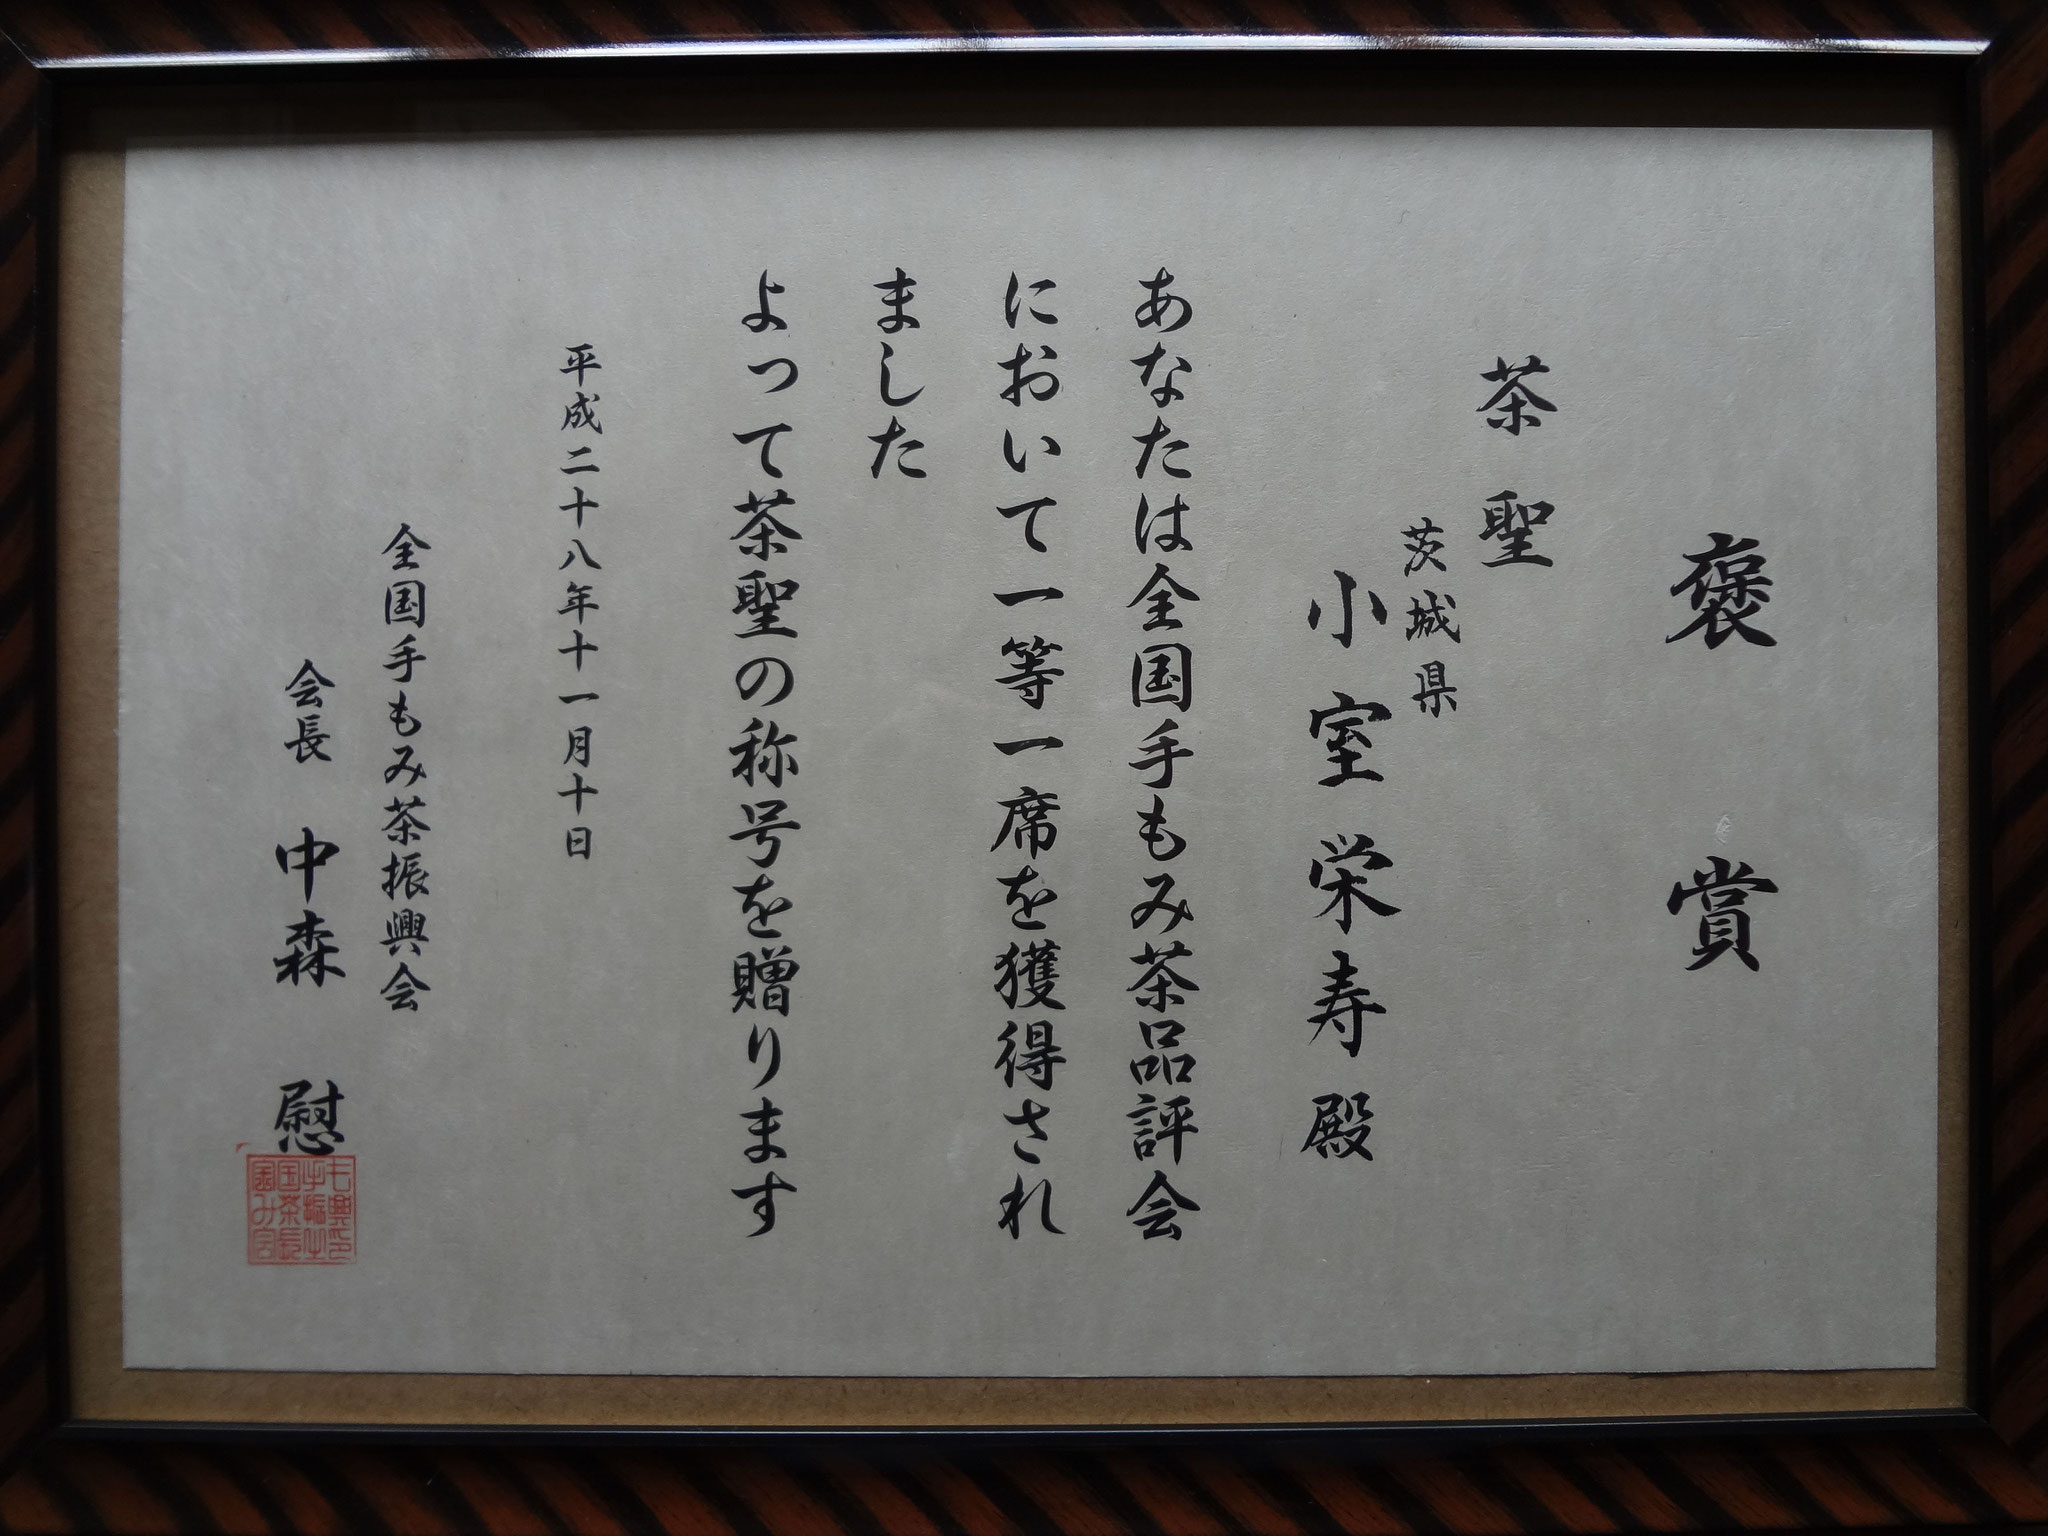 褒賞
茶聖
茨城県
小室栄寿殿
あなたは全国手もみ茶品評会
において一等一席を獲得され
ました
よって茶聖の称号を贈ります
平成二十八年十一月十日
全国手もみ茶振興会
会長 中森 慰